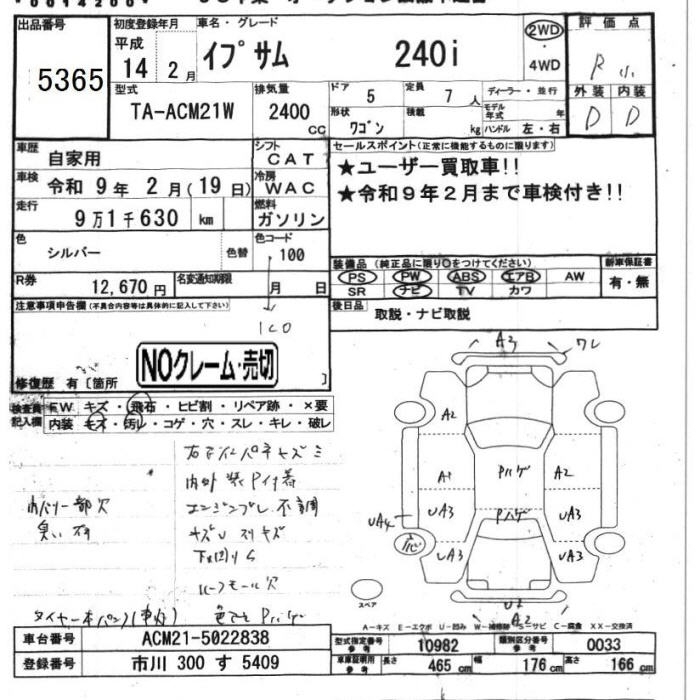 出品番号
5365
初度登録年月
平成
14年 2月
車名・グレード
イプサム 240i
2WD
・
4WD
評価点
R
外装 内装
D D
型式
TA-ACM21W
排気量
2400
CC
ドア 5
定員 7人
形状
ワゴン
積載
kg
ディーラー・並行
モデル年式 年
ハンドル 左・右
車歴
自家用
シフト
CAT
車検
令和 9年 2月(19日)
冷房
WAC
走行
9万1千630 km
燃料
ガソリン
色
シルバー
色替
色コード
100
セールスポイント(正常に機能するものに限ります)
★ユーザー買取車!!
★令和9年2月まで車検付き!!
R券
12,670円
名変通知期限
月 日
装備品(純正品に限り○をつけてください)
PS PW ABS エアB AW
SR ナビ TV カワ
新車保証書
有・無
後日品
取説・ナビ取説
注意事項申告欄(不具合内容等は具体的に記入して下さい)
1C0
NOクレーム・売切
修復歴 有〔箇所 〕
検査員記入欄
FW キズ・飛石・ヒビ割・リペア跡・×要
内装 キズ・汚レ・コゲ・穴・スレ・キレ・破レ
内外装
エンジンブレ不調
下回りS
ルーフモール欠
臭い有
A3
ワレ
A2
A1
Pハゲ
A2
UA3
Pハゲ
UA3
UA4
UA3
UA3
スペア
A2
A－キズ E－エクボ U－凹み W－補修跡 S－サビ C－腐食 XX－交換済
車台番号
ACM21-5022838
登録番号
市川 300 す 5409
型式指定番号
参考
10982
類別区分番号
参考
0033
車庫証明用
参考
長さ 465 cm
幅 176 cm
高さ 166 cm